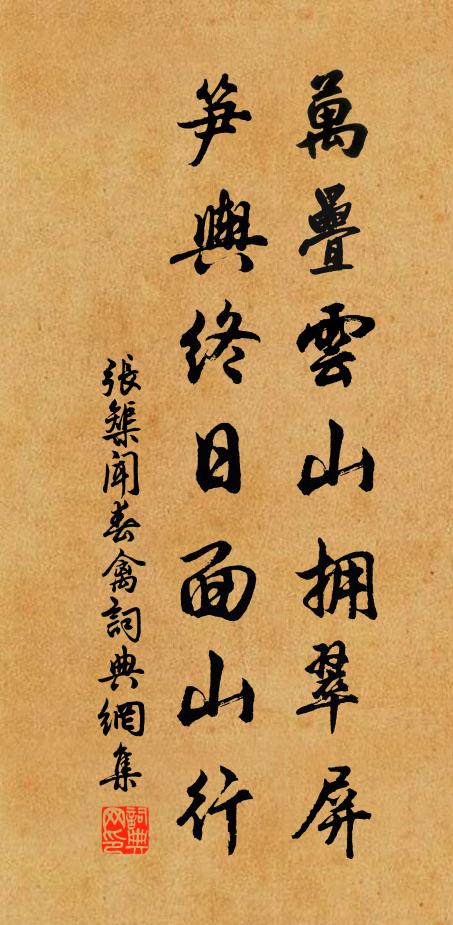 萬疊雲山拥翠屏
笋輿終日面山行
張榘聞春禽詞典網集
詞典
网印